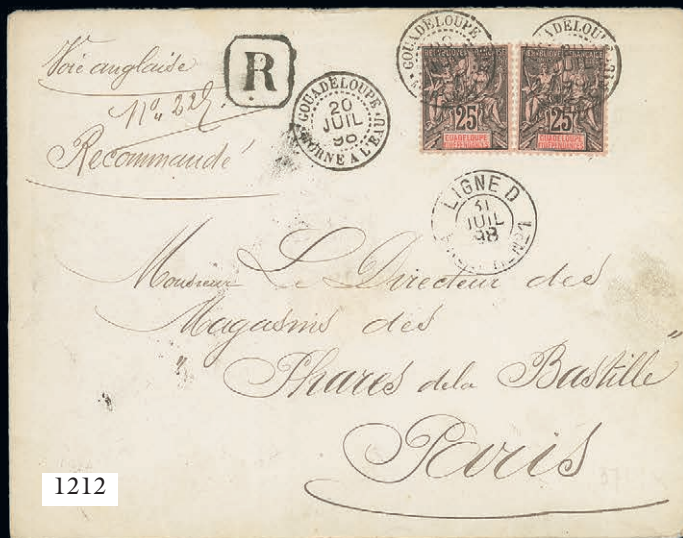 Voie anglaise
No. 225.
Recommandé
R
GOUADELOUPE
20
JUIL
98
MORNE A L'EAU
GOUADELOUPE
GOUADELOUPE
25
25
GUADELOUPE
GUADELOUPE
LIGNE D
31
JUIL
98
Monsieur Le Directeur des
Magasins des
"Phares de la Bastille"
Paris
37
1212